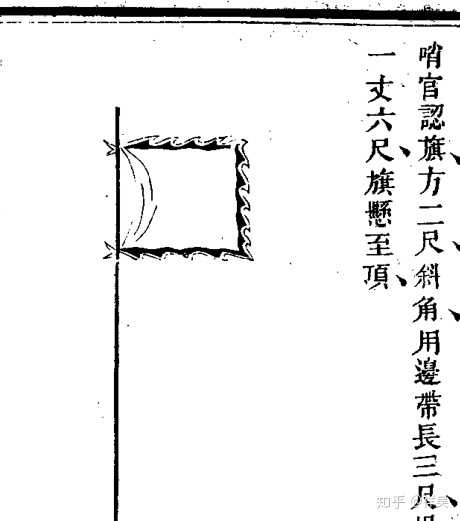 哨官認旗、方二尺、斜角、用邊帶長三尺、
一丈六尺、旗懸至頂、
知乎